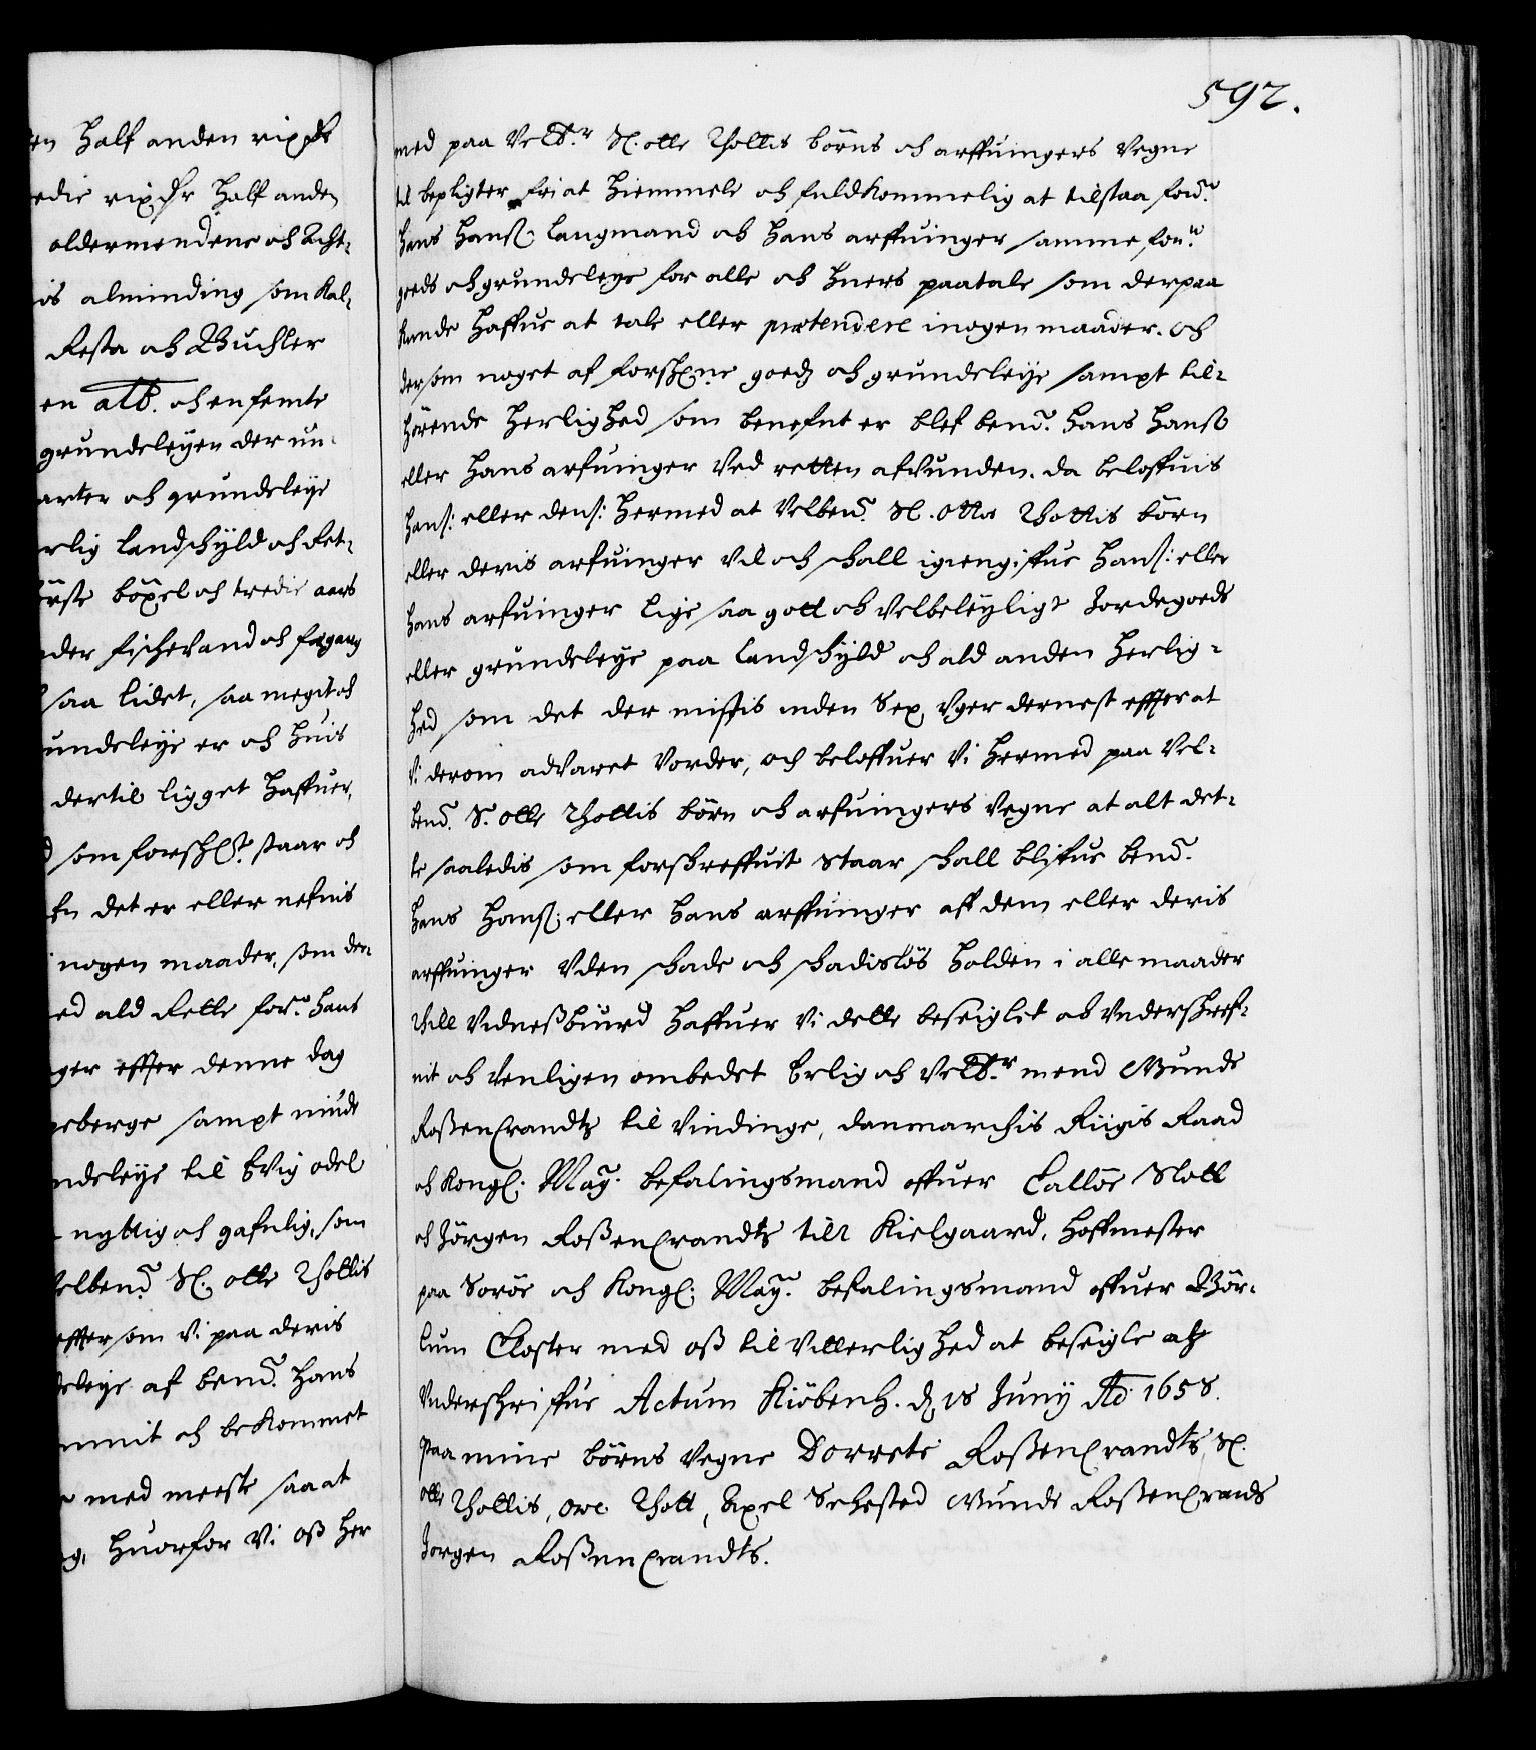 en half anden rixdr
edie rixdr half anden
oldermendene och Acht-
is alminding som kal-
Resta och Buchler
en alb. och en femte
grundeleyen der un-
arter och grundeleye
rlig landschyld och Ret-
örste böxel och tredie aars
der fischevand och fægang
saa lidet, saa megit och
undeleye er och huis
dertil ligget haffuer,
som forschet. staar och
fn det er eller nefnis
nogen maader, som der-
ed ald Rette for.e hans
ger effter denne dag
eberge sampt ninde
ndeleye til Evig odel
nyttig och gafnlig, som
elbend. Sl. otte Thottis
effter som Vi paa deris
eleye af bemd. hans
mmit och bekommet
med meeste saa at
g, huorfor Vi oss her
592.
med paa Velb.r Sl. otte Thottis börns och arffuingers Vegne
til bepligter fri at hiemmele och fuldkommelig at tilstaa ford.
hans hanss. langmand och hans arffuinger samme for.ne
goeds och grundeleye for alle och huers paatale som derpaa
kunde haffue at tale eller prætendere i nogen maader. och
dersom noget af forsch.ne goeds och grundeleye sampt til-
hörende herlighed som benefnt er blef bemd. hans hanss.
eller hans arfuinger Ved retten afvunden. da beloffuis
hans: eller dens: hermed at Velbemd. Sl. Otte Thottis börn
eller deris arfuinger Vil och schall igiengiffue hans: eller
hans arfuinger lige saa gott och Velbeleyligt Jordegoeds
eller grundeleye paa landschyld och ald anden herlig-
hed som det der mistis inden Sex Uger dernest effter at
Vi derom advaret Vorder, och beloffuer Vi hermed paa Vel-
bemd. S. otte Thottis börn och arfuingers Vegne at alt det-
te saaledis som forschreffuit Staar schall blifue bemd.
hans hanss. eller hans arffuinger aff dem eller deris
arffuinger Uden schade och schadislös holden i alle maader
Till Vidnessbiurd haffuer Vi dette beseiglit och Underschref-
uit och Venligen ombedet Erlig och Velb.r mend Gunde
Rossencrandtz til Vindinge, danmarchis Riigis Raad
och Kongl. May. befalingsmand offuer Callöe Slott
och Jörgen Rossencrandtz till Kielgaard, hoffmester
paa Soröe och Kongl. May. befalingsmand offuer Bör-
lum Closter med oss til Vitterlighed at beseigle och
Underschriffue Actum Kiöbenh. d. 18 Junij Ao. 1658.
paa mine börns Vegne Dorrete Rossencrandts, Sl.
otte Thottis, ove Thott, Axel Sehested Gunde Rossencrands
Jorgen Rossencrandts.